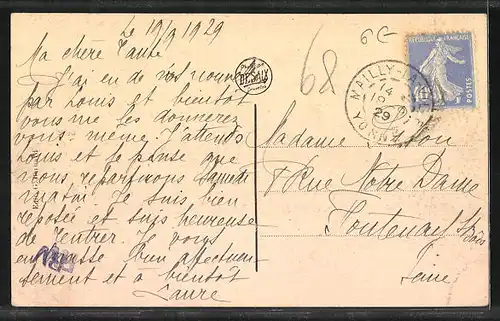 Le 19/9 1929
Ma chère Tante
J'ai eu de vos nouv
par Louis et bientôt
vous me les donnerez
vous-même. J'attends
Louis et je pense que
nous repartirons Samedi
matin. Je suis bien
reposée et suis heureuse
de rentrer. Je vous
embrasse bien affectueu
sement et à bientôt
Laure
DESAIX
68
RÉPUBLIQUE FRANÇAISE
POSTES
MAILLY-LA-
YONNE
14
19 - 9
29
Madame
8 Rue Notre Dame
Fontenay s/Bois
Seine